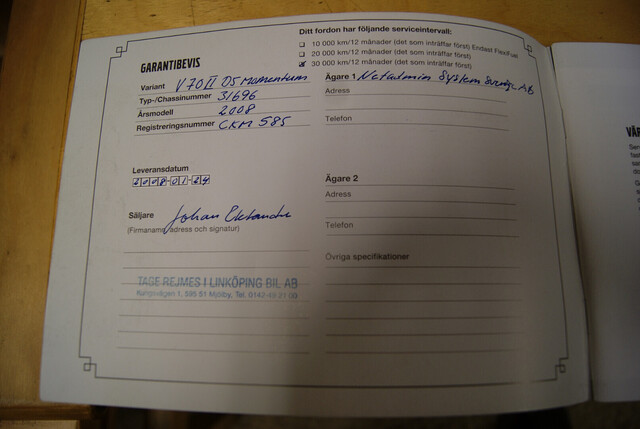 Ditt fordon har följande serviceintervall:
10 000 km/12 månader (det som inträffar först) Endast FlexiFuel
20 000 km/12 månader (det som inträffar först)
30 000 km/12 månader (det som inträffar först)
GARANTIBEVIS
Variant V70 II D5 Momentum
Typ-/Chassinummer 31696
Årsmodell 2008
Registreringsnummer CKM 585
Leveransdatum
2008-01-24
Säljare Johan
(Firmanamn, adress och signatur)
TAGE REJMES I LINKÖPING BIL AB
595 51 Mjölby, Tel.
Ägare 1 Netadmin System Sverige AB
Adress
Telefon
Ägare 2
Adress
Telefon
Övriga specifikationer